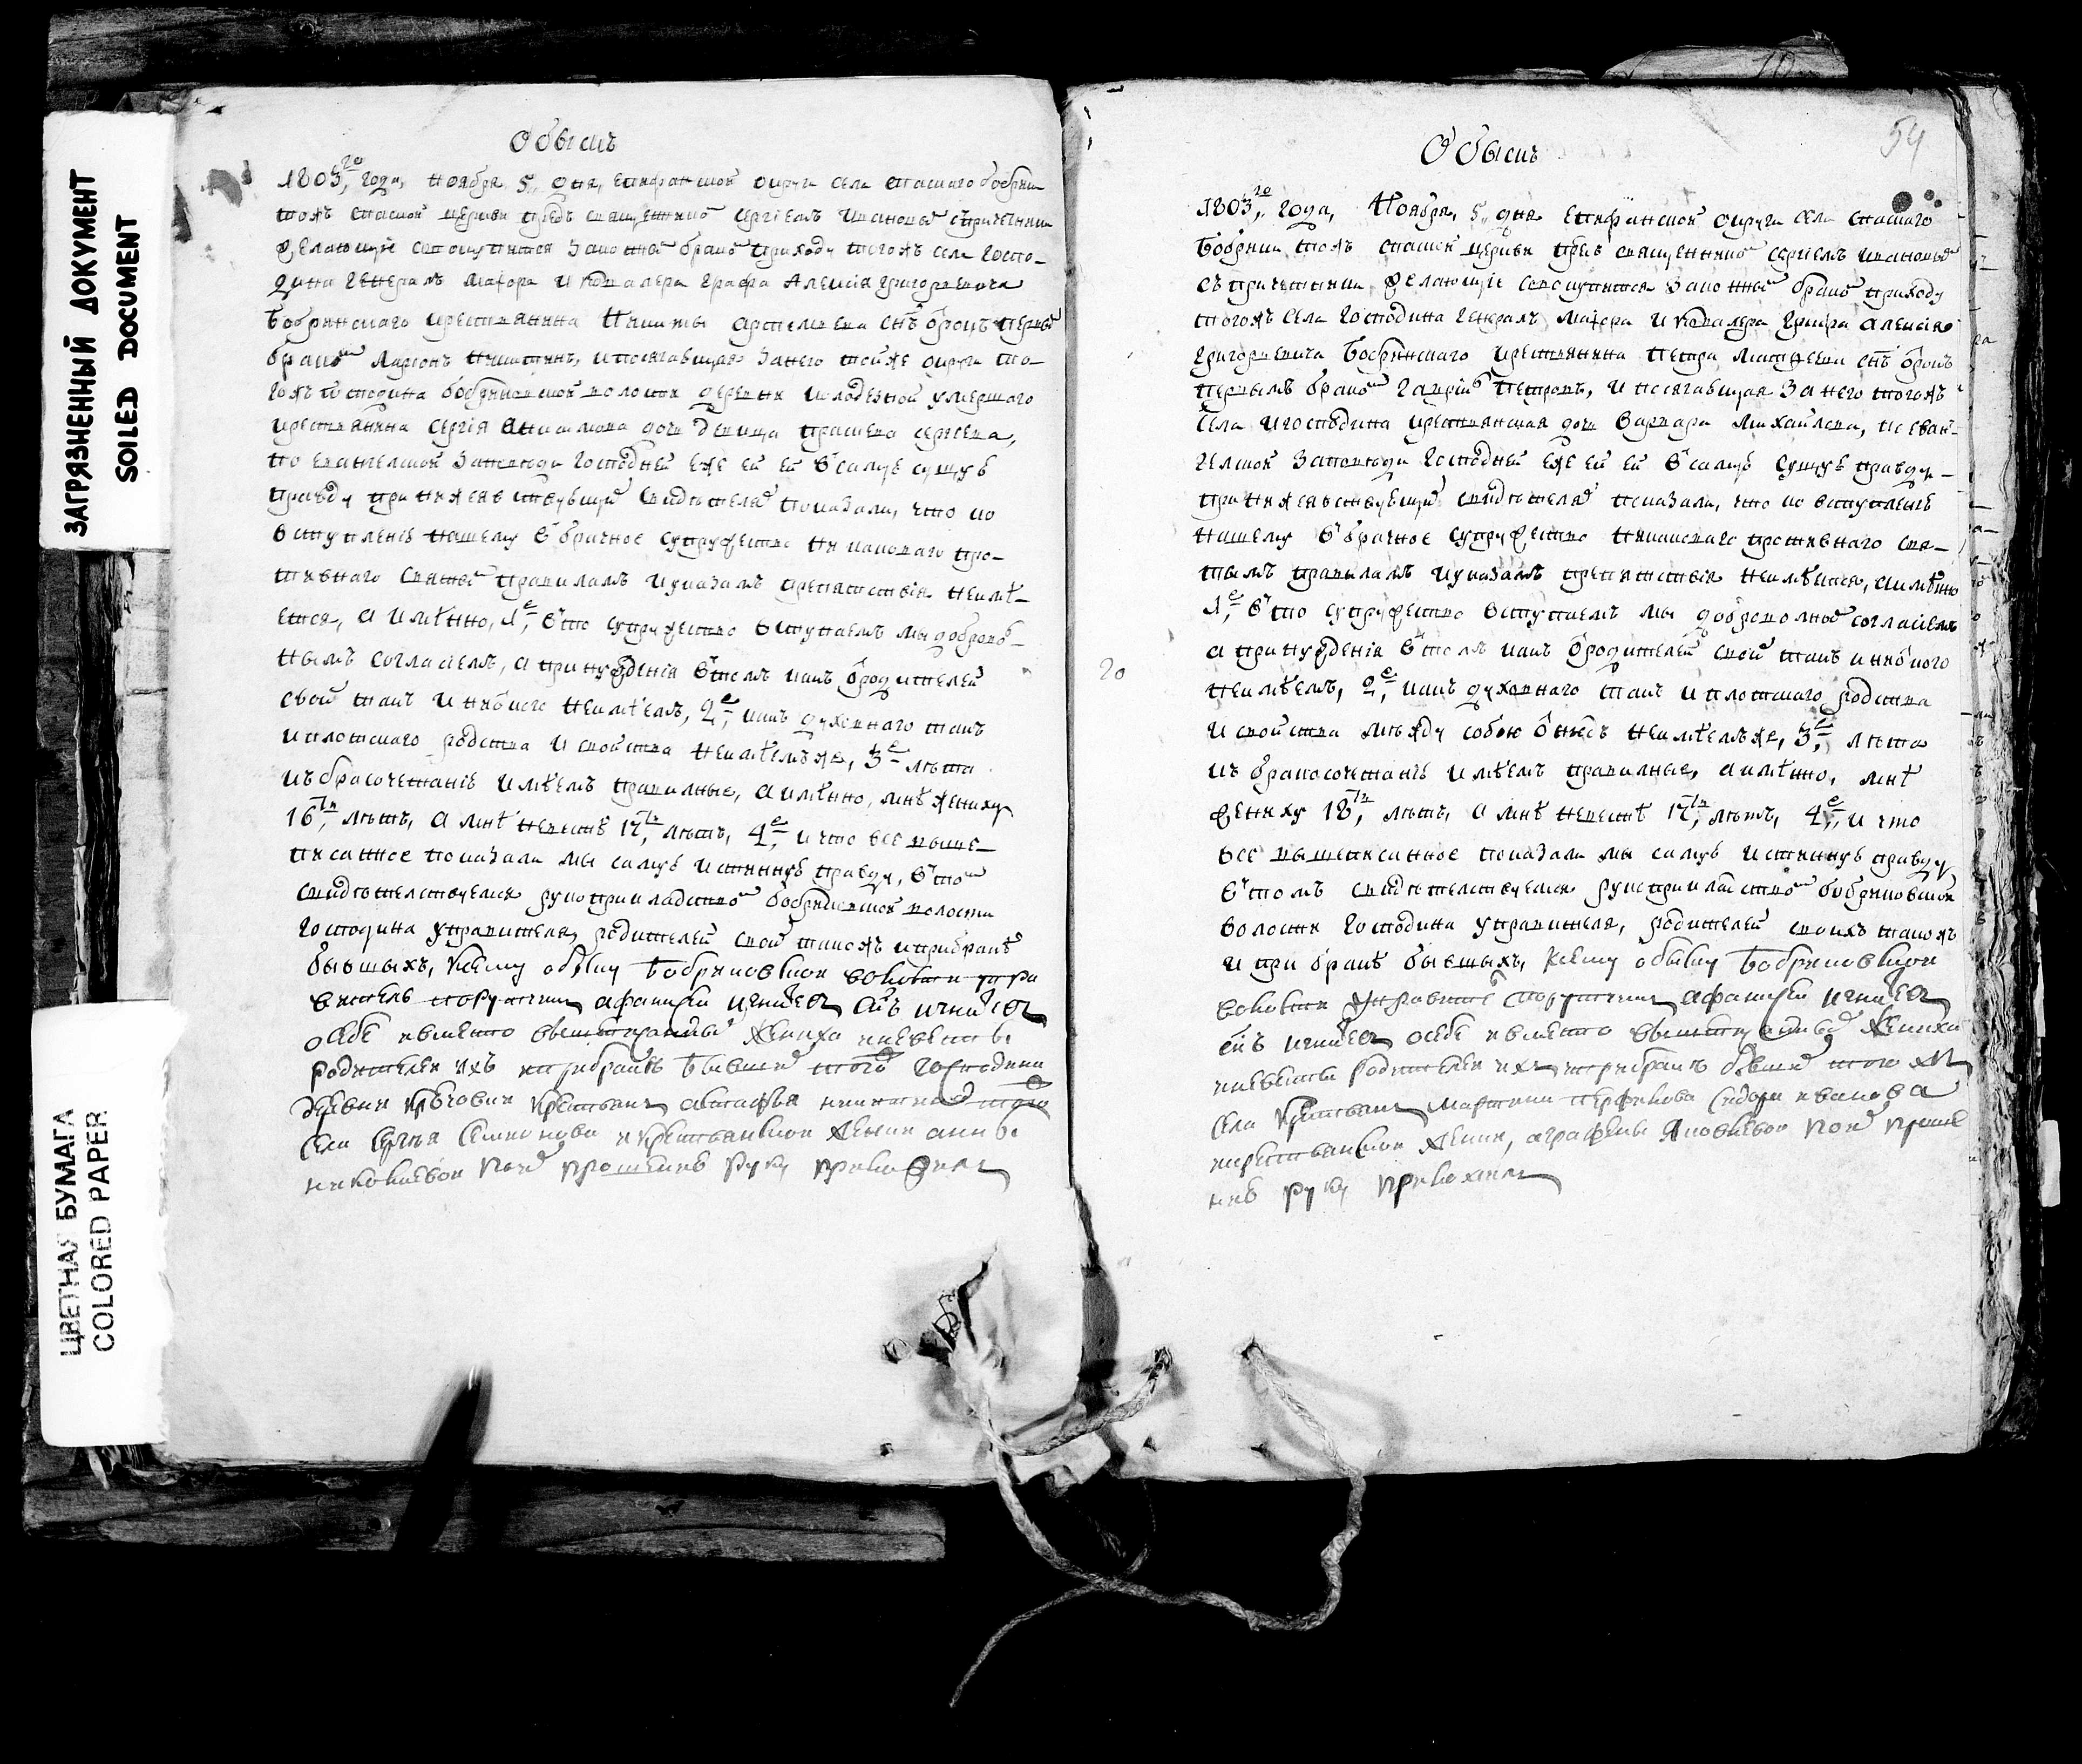 ЗАГРЯЗНЕННЫЙ ДОКУМЕНТ
SOILED DOCUMENT
ЦВЕТНАЯ БУМАГА
COLORED PAPER
Обыскъ
1803,го года, Ноября 5, дня, Епифанской округи села Спаскаго Бобрики
тожъ Спаской церкви предъ священнико Сергіемъ Ивановы съ причетники
желающіе совокупится законны брако приходу тогожъ села Госпо-
дина Генералъ Маіора и кавалера Графа Алексія Григорьевича
Бобринскаго крестьянина Никиты Артемьева снъ отрокъ первы
брако Ларіонъ Никитинъ, и посягавщая за него той же округи то-
гожъ Господина Бобриковской волости деревни Колодезной умершаго
крестьянина Сергія Анисимова дочь девица Прасковья Сергеева,
по Евангелской Заповеди Господней еже ей ей в самую сущую
правду при нижесвидетельствующи свидетеля показали, что ко
вступленію нашему в брачное супружество ни какого про-
тивнаго святы правиламъ и указамъ препятствія неимѣ-
ется, а имѣнно, 1е, в то супружество вступаемъ мы доброво-
нымъ согласіемъ, а принужденія в томъ какъ о родителей
свои такъ и ни о кого неимѣемъ, 2е, какъ духовнаго такъ
и плотскаго родства и свойства неимѣемъ же, 3е лѣта
къ бракосочетанію имѣемъ правилные, а имѣнно, мнѣ жениху
16ть, лѣтъ, а мнѣ невестѣ 17ть, лѣтъ, 4е, и что все выше-
писанное показали мы самую истинную правду, в то
свидетелствуемся рукоприкладство Бобриковской волости
Господина управителя, родителей свои такожъ и при браке
бывшихъ, К сему обыску Бобриковской волости упра
витель порутчикъ Афанасей Игнатьев снъ Игнатьев
о себе и вместо вышеписанны жениха и невесты
родителей ихъ и при браке бывши того Господина
села Сергея Семионова и крестьянской жонки Анны
Николаевой по прошению руку приложил
54
Обыскъ
1803,го года, Ноября, 5, дня Епифанской округи села Спаскаго
Бобрики тожъ Спаской церкви предъ священнико Сергіемъ Ивановы
съ причетники желающіе совокупится законны брако приходу
тогожъ села Господина Генералъ Маіора и кавалера Графа Алексія
Григорьевича Бобринскаго крестьянина Петра Матвеева снъ отрокъ
первымъ брако Гаврій Петровъ, и посягавщая за него тогожъ
села и господина крестьянская дочь Варвара Михайлова, по Еван-
гелской Заповеди Господней еже ей ей в самую сущую правду
при нижесвидетельствующи свидетеля показали, что ко вступленію
нашему в брачное супружество никакого противнаго свя-
тымъ правиламъ и указамъ препятствія неимѣется, а имѣнно
1е, в то супружество вступаемъ мы доброволны согласіемъ
а принужденія в томъ какъ о родителей свои такъ и ни о кого
20
неимѣемъ, 2е, какъ духовнаго такъ и плотскаго родства
и свойства между собою отнюдь неимѣемъ же, 3е, лѣта
къ бракосочетанію имѣемъ правилные, а имѣнно, мнѣ
жениху 18ть, лѣтъ, а мнѣ невестѣ 17ть, лѣтъ, 4е, и что
все вышеписанное показали мы самую истинную правду
в томъ свидетелствуемся рукоприкладство Бобриковской
волости Господина управителя, родителей своихъ такожъ
и при браке бывшихъ, К сему обыску Бобриковской
волости управитель порутчикъ Афанасей Игнатьев
снъ Игнатьев о себе и вместо вышеписанны жениха
и невесты родителей ихъ и при браке бывши того ж
села крестьянъ Мартина Перфилова Сидора Иванова
и крестьянской жонки, Аграфены Яковлевой по проше
нию руку приложил